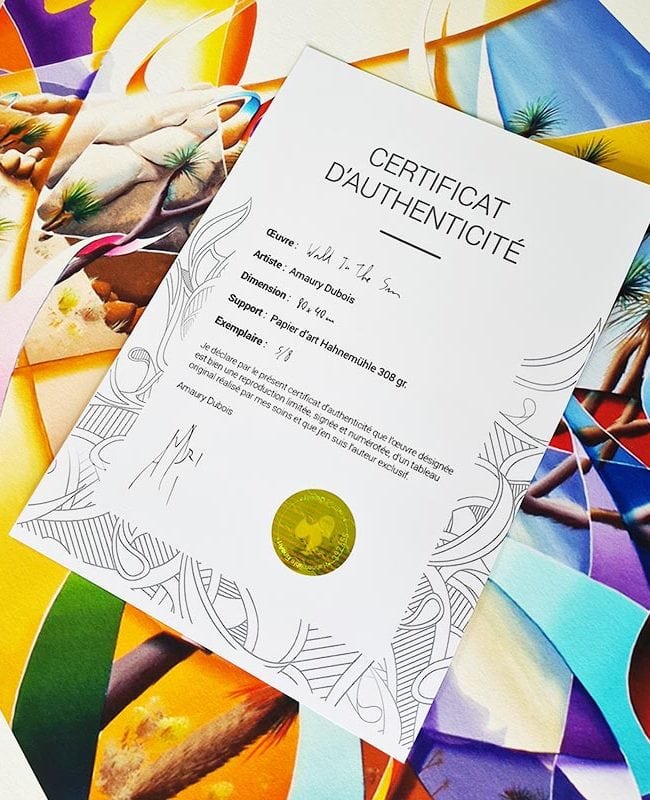 CERTIFICAT
D'AUTHENTICITÉ
Œuvre : Walk In The Sun
Artiste : Amaury Dubois
Dimension : 80 x 40 cm
Support : Papier d'art Hahnemühle 308 gr.
Exemplaire : 5/8
Je déclare par le présent certificat d'authenticité que l'œuvre désignée
est bien une reproduction limitée, signée et numérotée, d'un tableau
original réalisé par mes soins et que j'en suis l'auteur exclusif.
Amaury Dubois